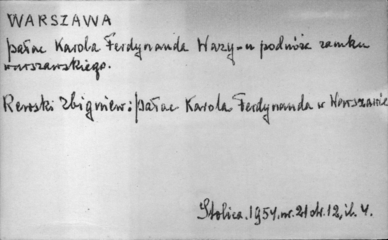 WARSZAWA
pałac Karola Ferdynanda Wazy - u podnóża zamku
warszawskiego.
Rewski Zbigniew: pałac Karola Ferdynanda w Warszawie
Stolica. 1954. nr. 21 str. 12, il. 4.